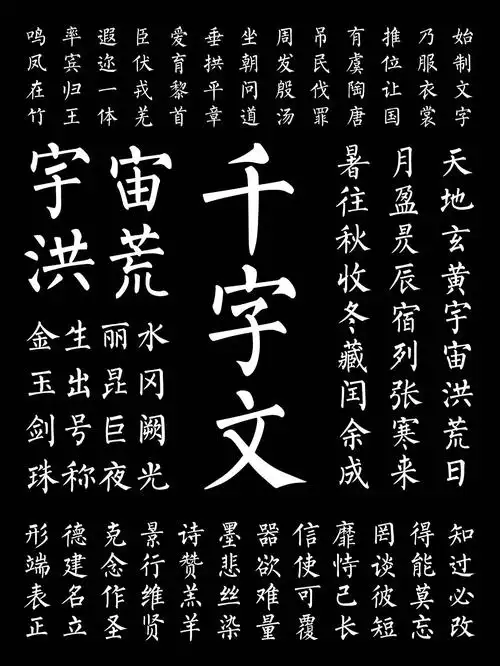 始制文字
乃服衣裳
推位让国
有虞陶唐
吊民伐罪
周发殷汤
坐朝问道
垂拱平章
爱育黎首
臣伏戎羌
遐迩一体
率宾归王
鸣凤在竹
天地玄黄宇宙洪荒日
月盈昃辰宿列张寒来
暑往秋收冬藏闰余成
千字文
宇宙
洪荒
金生丽水
玉出昆冈
剑号巨阙
珠称夜光
知过必改
得能莫忘
罔谈彼短
靡恃己长
信使可覆
器欲难量
墨悲丝染
诗赞羔羊
景行维贤
克念作圣
德建名立
形端表正